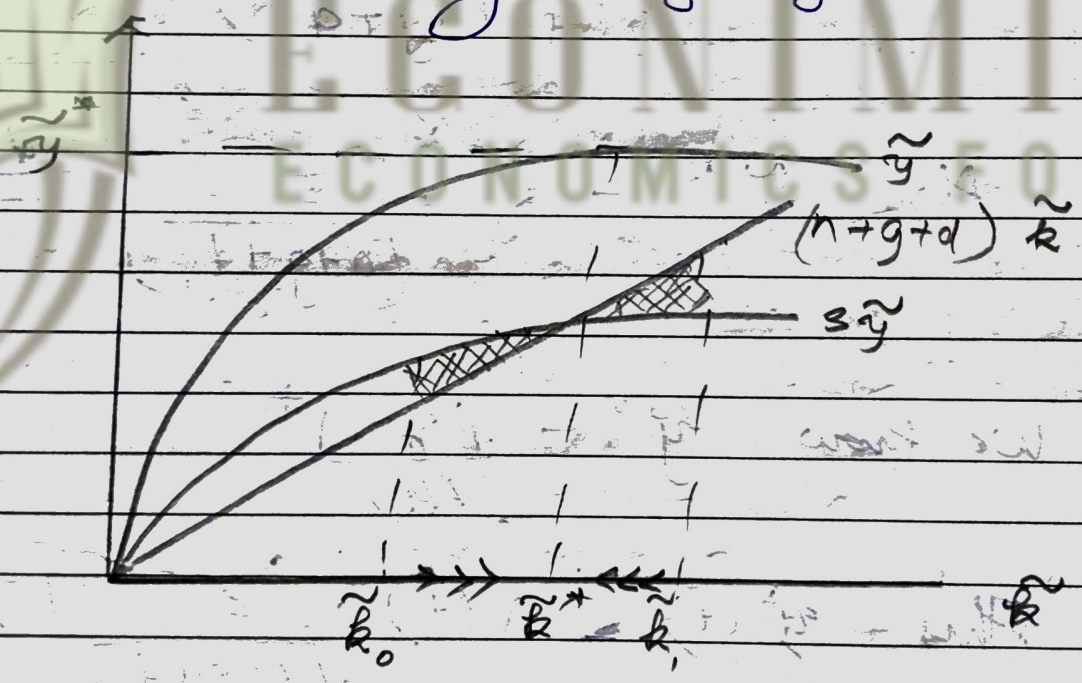 ECONIMI
ECONOMICS FO
ỹ*
ỹ
(n+g+d) k̃
sỹ
k̃₀ k̃* k̃₁ k̃